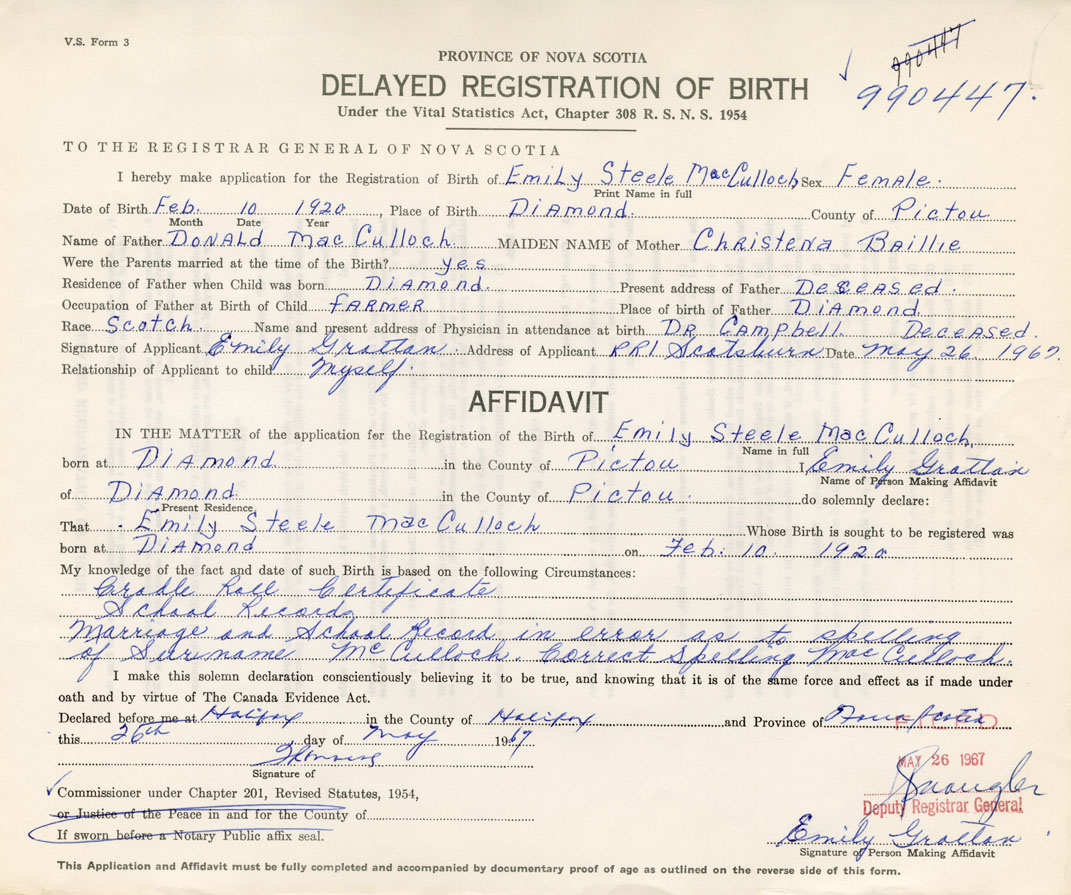 V.S. Form 3
990447
PROVINCE OF NOVA SCOTIA
DELAYED REGISTRATION OF BIRTH
990447.
Under the Vital Statistics Act, Chapter 308 R. S. N. S. 1954
TO THE REGISTRAR GENERAL OF NOVA SCOTIA
I hereby make application for the Registration of Birth of Emily Steele MacCulloch Sex Female.
Print Name in full
Date of Birth Feb. 10 1920, Place of Birth Diamond. County of Pictou
Month Date Year
Name of Father Donald MacCulloch. MAIDEN NAME of Mother Christena Baillie
Were the Parents married at the time of the Birth? yes
Residence of Father when Child was born Diamond. Present address of Father Deceased.
Occupation of Father at Birth of Child farmer Place of birth of Father Diamond
Race Scotch. Name and present address of Physician in attendance at birth Dr. Campbell. Deceased.
Signature of Applicant Emily Grattan. Address of Applicant RR1 Scotsburn Date May 26 1967.
Relationship of Applicant to child Myself.
AFFIDAVIT
IN THE MATTER of the application for the Registration of the Birth of Emily Steele MacCulloch
Name in full
born at Diamond in the County of Pictou I Emily Grattan
Name of Person Making Affidavit
of Diamond in the County of Pictou. do solemnly declare:
Present Residence
That Emily Steele MacCulloch Whose Birth is sought to be registered was
born at Diamond on Feb. 10 1920
My knowledge of the fact and date of such Birth is based on the following Circumstances:
Cradle Roll Certificate
School Records
Marriage and School Record in error as to spelling
of Surname McCulloch. Correct Spelling MacCulloch.
I make this solemn declaration conscientiously believing it to be true, and knowing that it is of the same force and effect as if made under
oath and by virtue of The Canada Evidence Act.
Declared before me at Halifax in the County of Halifax and Province of Nova Scotia
FILED
this 26th day of May 1967
MAY 26 1967
Signature of
Commissioner under Chapter 201, Revised Statutes, 1954,
Deputy Registrar General
or Justice of the Peace in and for the County of
If sworn before a Notary Public affix seal.
Emily Grattan
Signature of Person Making Affidavit
This Application and Affidavit must be fully completed and accompanied by documentary proof of age as outlined on the reverse side of this form.